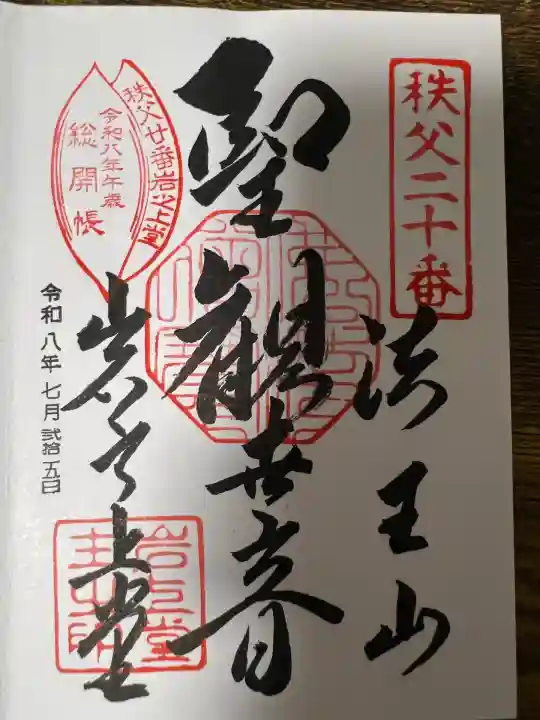 秩父二十番
法王山
聖観世音
岩之上堂
秩父廿番岩之上堂
令和八年午歳
総開帳
令和八年七月弐拾五日